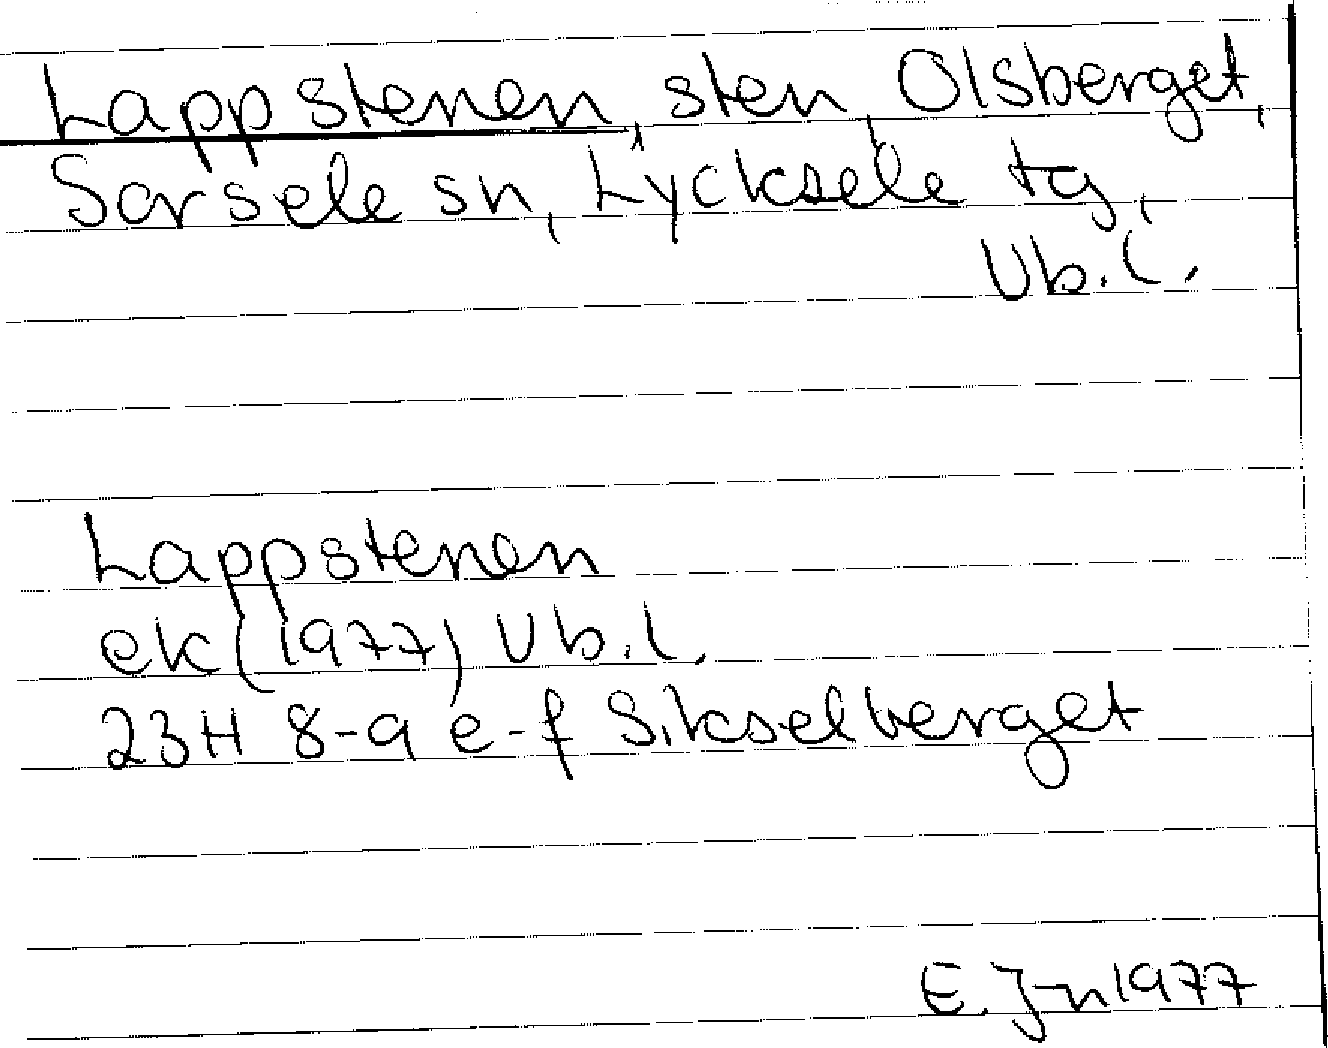 Lappstenen, sten, Olsberget,
Sorsele sn, Lycksele tg,
Vb. l.
Lappstenen
ek (1977) Vb. l.
23H 8-9 e-f Sikselberget
E. J-n 1977